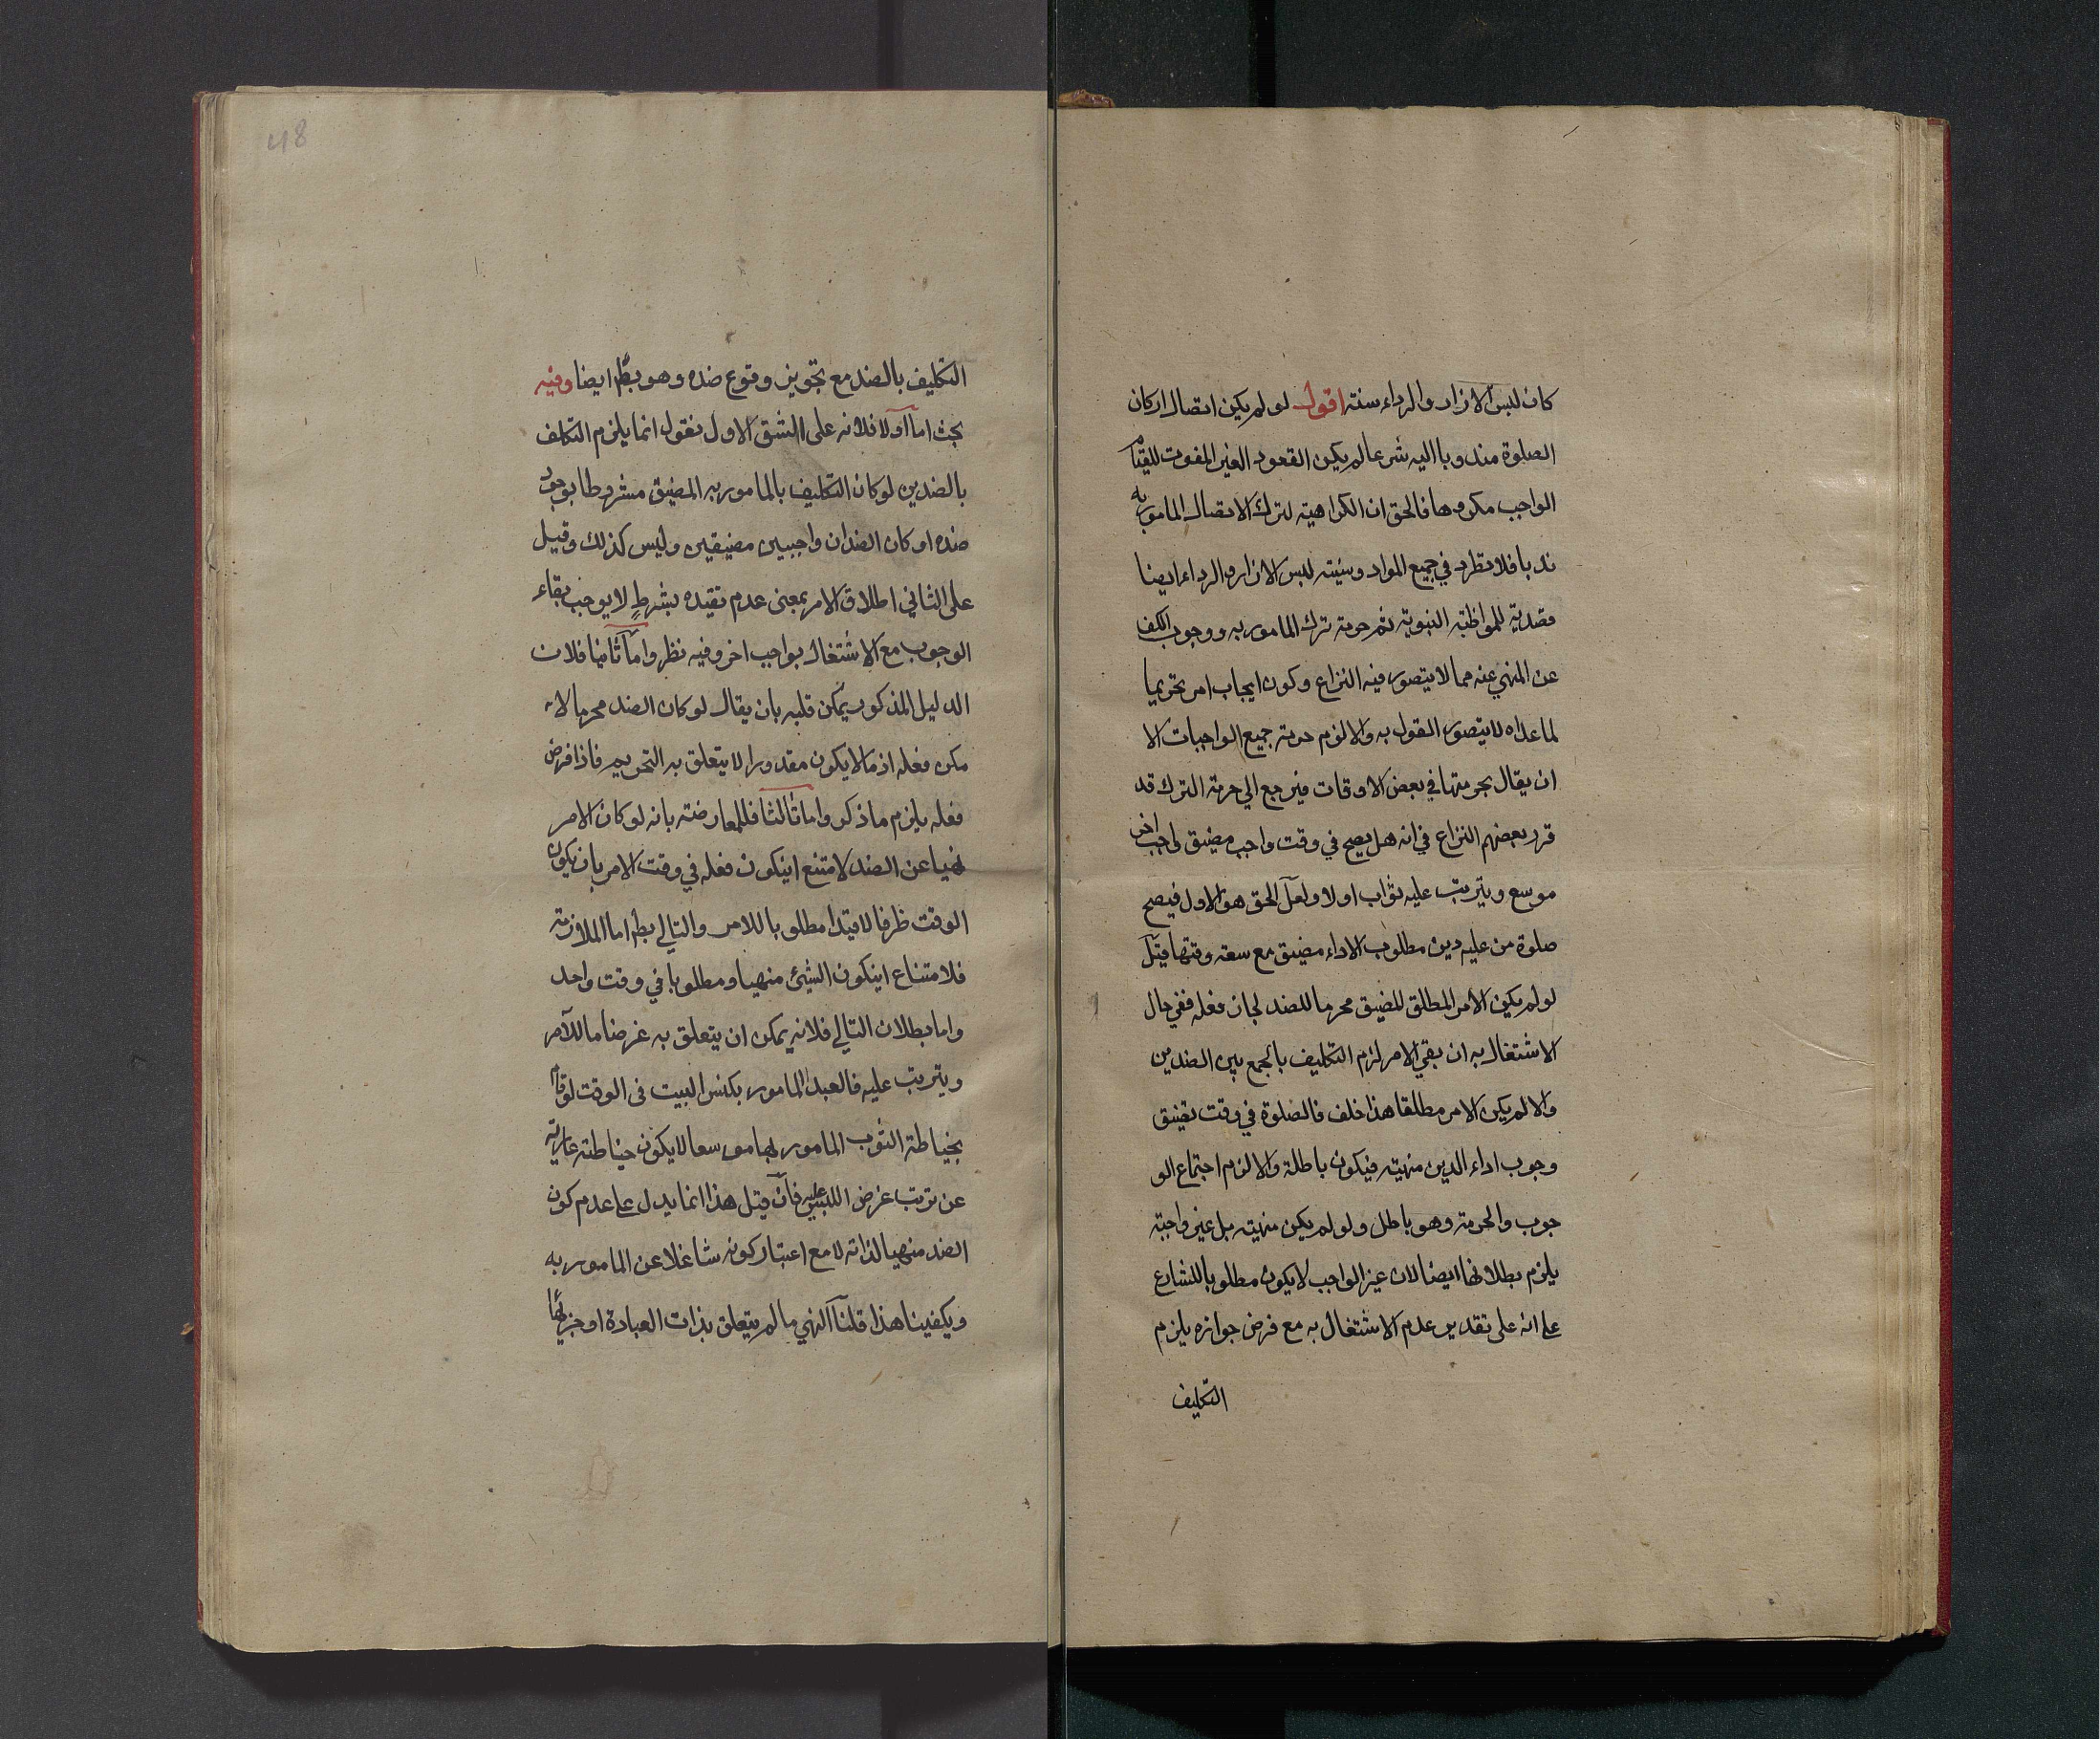 كان لبس الازار والرداء سنته اقول لو لم يكن اتصال اركان
الصلوة مندوبا اليه شرعا لم يكن القعود الغير المفوت للقيام
الواجب مكروها فالحق ان الكراهية لترك الاتصال المامور به
ندبا فلا تطرد في جميع المواد وسنية لبس الازار والرداء ايضا
قصدية للمواظبة النبوية ثم حرمة ترك المامور به ووجوب الكف
عن المنهي عنه مما لا يتصور فيه النزاع وكون ايجاب امر تحريما
لما عداه لا يتصور القول به والا لزم حرمة جميع الواجبات الا
ان يقال بحرمتها في بعض الاوقات فيرجع الي حرمة الترك قد
قرر بعضهم النزاع في انه هل يصح في وقت واجب مضيق واجب اخر
موسع ويترتب عليه ثواب اولا ولعل الحق هو الاول فيصح
صلوة من عليه دين مطلوب الاداء مضيق مع سعة وقتها قيل
لو لم يكن الامر المطلق للمضيق محرما للضد لجاز فعله ففي حال
الاشتغال به ان بقي الامر لزم التكليف بالجمع بين الضدين
والا لم يكن الامر مطلقا هذا خلف فالصلوة في وقت تضيق
وجوب اداء الدين منهية فيكون باطلة والا لزم اجتماع الو
جوب والحرمة وهو باطل ولو لم يكن منهية بل غير واجبة
يلزم بطلانها ايضا لان غير الواجب لا يكون مطلوبا للشارع
علي انه على تقدير عدم الاشتغال به مع فرض جوازه يلزم
التكليف
التكليف بالضد مع تجويز وقوع ضده وهو بط ايضا وفيه
بحث اما اولا فلانه على الشق الاول نقول انما يلزم التكلف
بالضدين لو كان التكليف بالمامور به المضيق مشروطا بوجود
ضده او كان الضدان واجبين مضيقين وليس كذلك وقيل
على الثاني اطلاق الامر بمعنى عدم تقيده بشرط لا يوجب بقاء
الوجوب مع الاشتغال بواجب اخر وفيه نظر واما ثانيا فلان
الدليل المذكور يمكن قلبه بان يقال لو كان الضد محرما لا
مكن فعله اذ ما لا يكون مقدورا لا يتعلق به التحريم فاذا فرض
فعله يلزم ما ذكر واما ثالثا فللمعارضة بانه لو كان الامر
نهيا عن الضد لامتنع اينكون فعله في وقت الامر بان يكون
الوقت ظرفا لا قيدا مطلوبا للامر والتالي بط اما الملازمة
فلامتناع اينكون الشيئ منهيا ومطلوبا في وقت واحد
واما بطلان التالي فلانه يمكن ان يتعلق به غرض ما للآمر
ويترتب عليه فالعبد المامور بكنس البيت فى الوقت لو قام
بخياطة الثوب المامور بها موسعا لا يكون خياطته عارية
عن ترتب غرض السيد عليه فان قيل هذا انما يدل علي عدم كون
الضد منهيا لذاته لا مع اعتبار كونه شاغلا عن المامور به
ويكفينا هذا قلنا النهي ما لم يتعلق بذات العبادة او جزئها
48